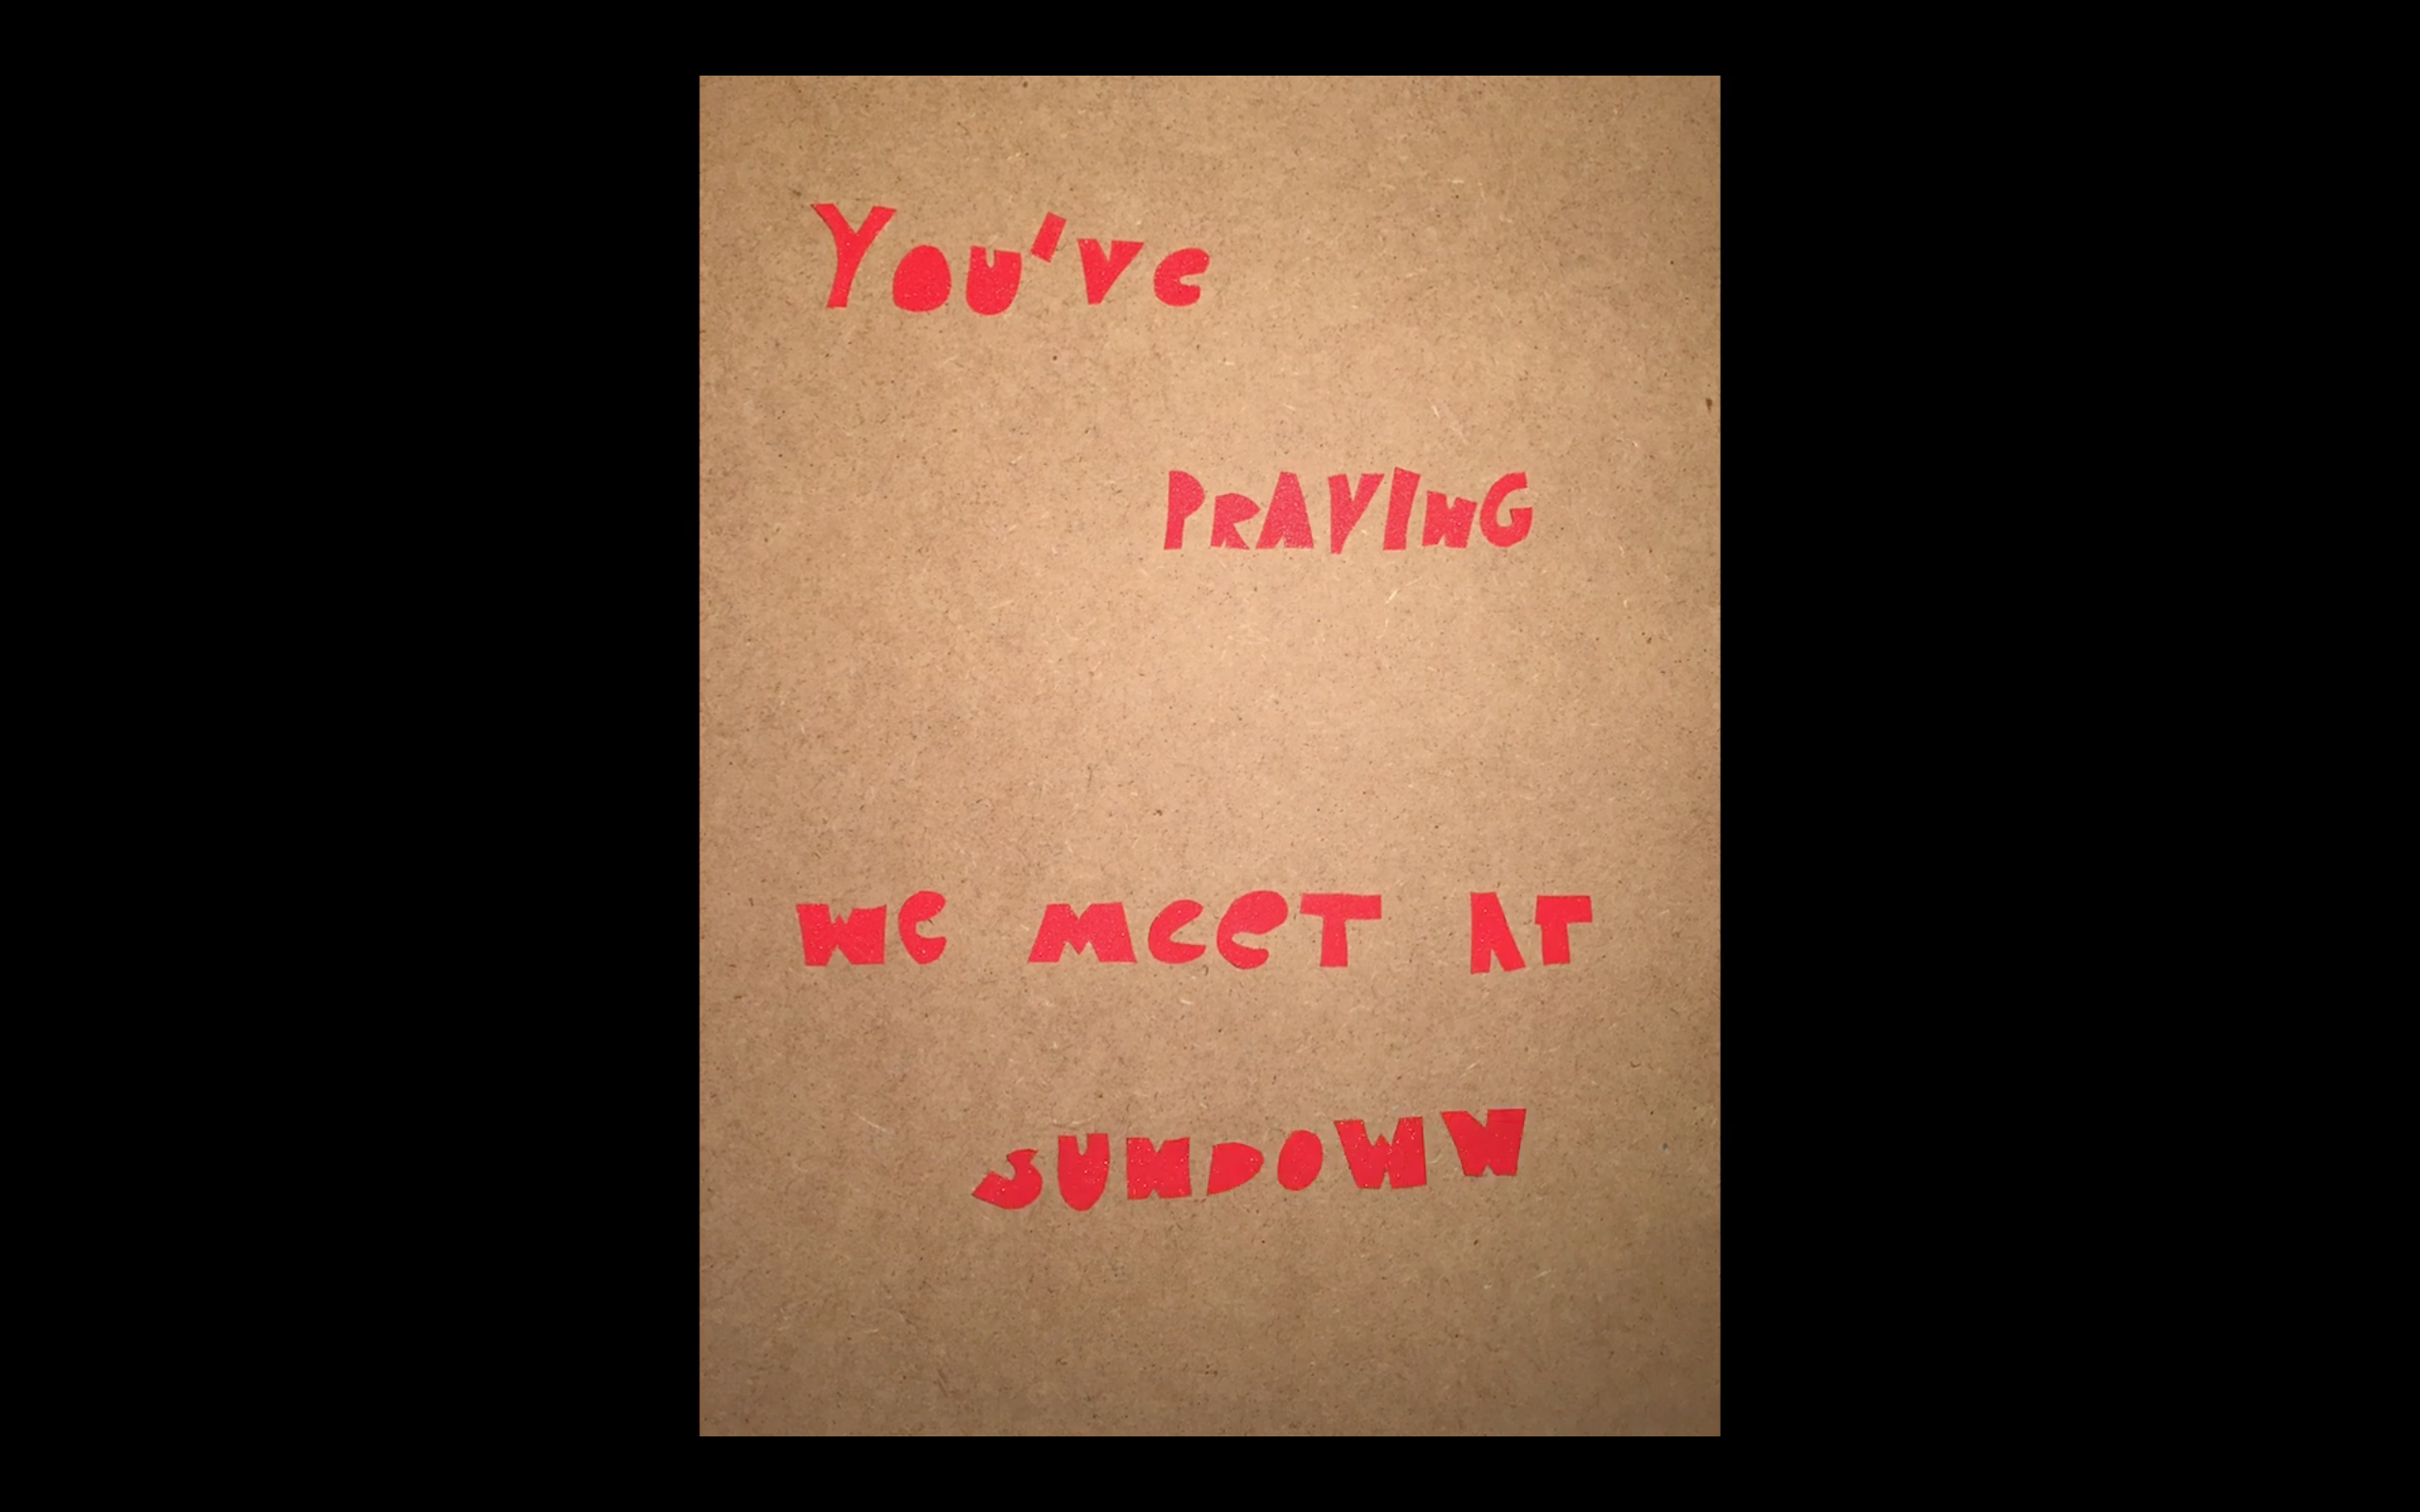 You've
PRAYING
WE MEET AT
SUNDOWN